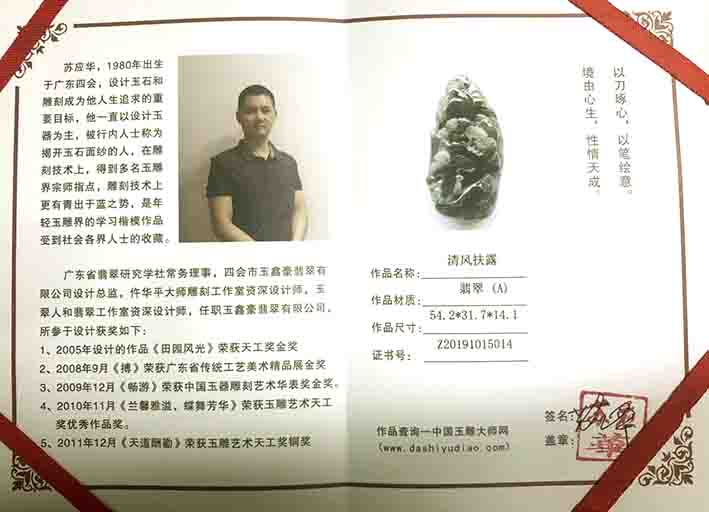 苏应华，1980年出生
于广东四会，设计玉石和
雕刻成为他人生追求的重
要目标，他一直以设计玉
器为主，被行内人士称为
揭开玉石面纱的人，在雕
刻技术上，得到多名玉雕
界宗师指点，雕刻技术上
更有青出于蓝之势，是年
轻玉雕界的学习楷模作品
受到社会各界人士的收藏。
广东省翡翠研究学社常务理事，四会市玉鑫豪翡翠有
限公司设计总监。仵华平大师雕刻工作室资深设计师，玉
翠人和翡翠工作室资深设计师，任职玉鑫豪翡翠有限公司，
所参于设计获奖如下：
1、2005年设计的作品《田园风光》荣获天工奖金奖
2、2008年9月《搏》荣获广东省传统工艺美术精品展金奖
3、2009年12月《畅游》荣获中国玉器雕刻艺术华表奖金奖。
4、2010年11月《兰馨雅溢、蝶舞芳华》荣获玉雕艺术天工
奖优秀作品奖。
5、2011年12月《天道酬勤》荣获玉雕艺术天工奖铜奖
以刀琢心，以笔绘意。
境由心生，性情天成。
作品名称：清风扶露
作品材质：翡翠 (A)
作品尺寸：54.2*31.7*14.1
证书号：Z20191015014
作品查询一中国玉雕大师网
(www.dashiyudiao.com)
签名：
盖章：